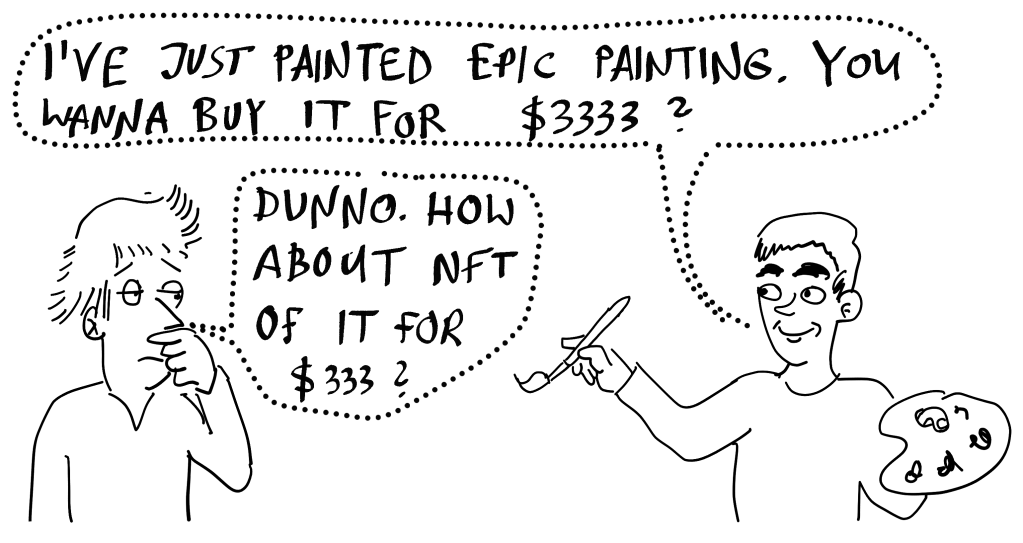 I'VE JUST PAINTED EPIC PAINTING. YOU
WANNA BUY IT FOR $3333 ?
DUNNO. HOW
ABOUT NFT
OF IT FOR
$333 ?